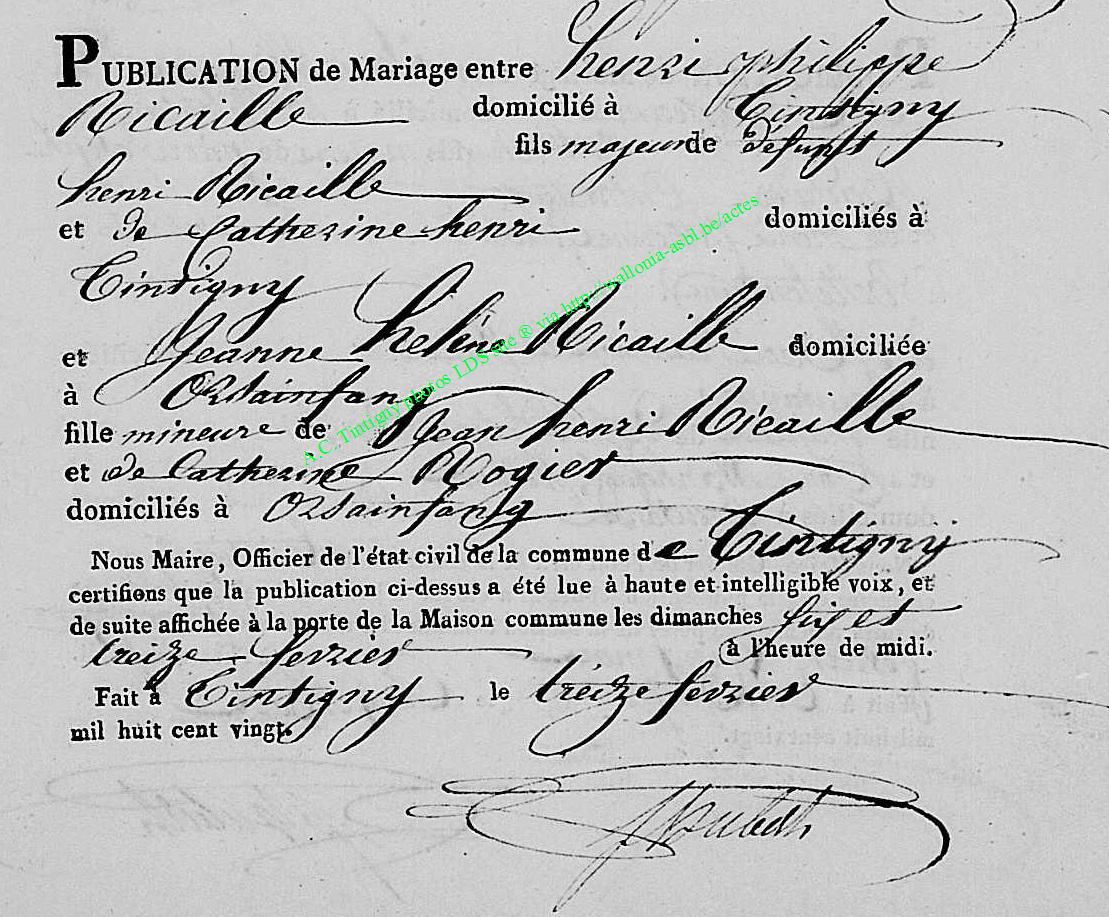 PUBLICATION de Mariage entre henri philippe
Ricaille domicilié à Tintigny
fils majeur de défunt
henri Ricaille
et de Catherine henri domiciliés à
Tintigny
et Jeanne heléne Ricaille domiciliée
à Orsainfang
fille mineure de Jean henri Ricaille
et de Catherine Rogier
domiciliés à Orsainfang
Nous Maire, Officier de l'état civil de la commune de Tintigny
certifions que la publication ci-dessus a été lue à haute et intelligible voix, et
de suite affichée à la porte de la Maison commune les dimanches six et
treize fevrier à l'heure de midi.
Fait à Tintigny le treize fevrier
mil huit cent vingt.
A.C.Tintigny photos LDS site ® via http://wallonia-asbl.be/actes